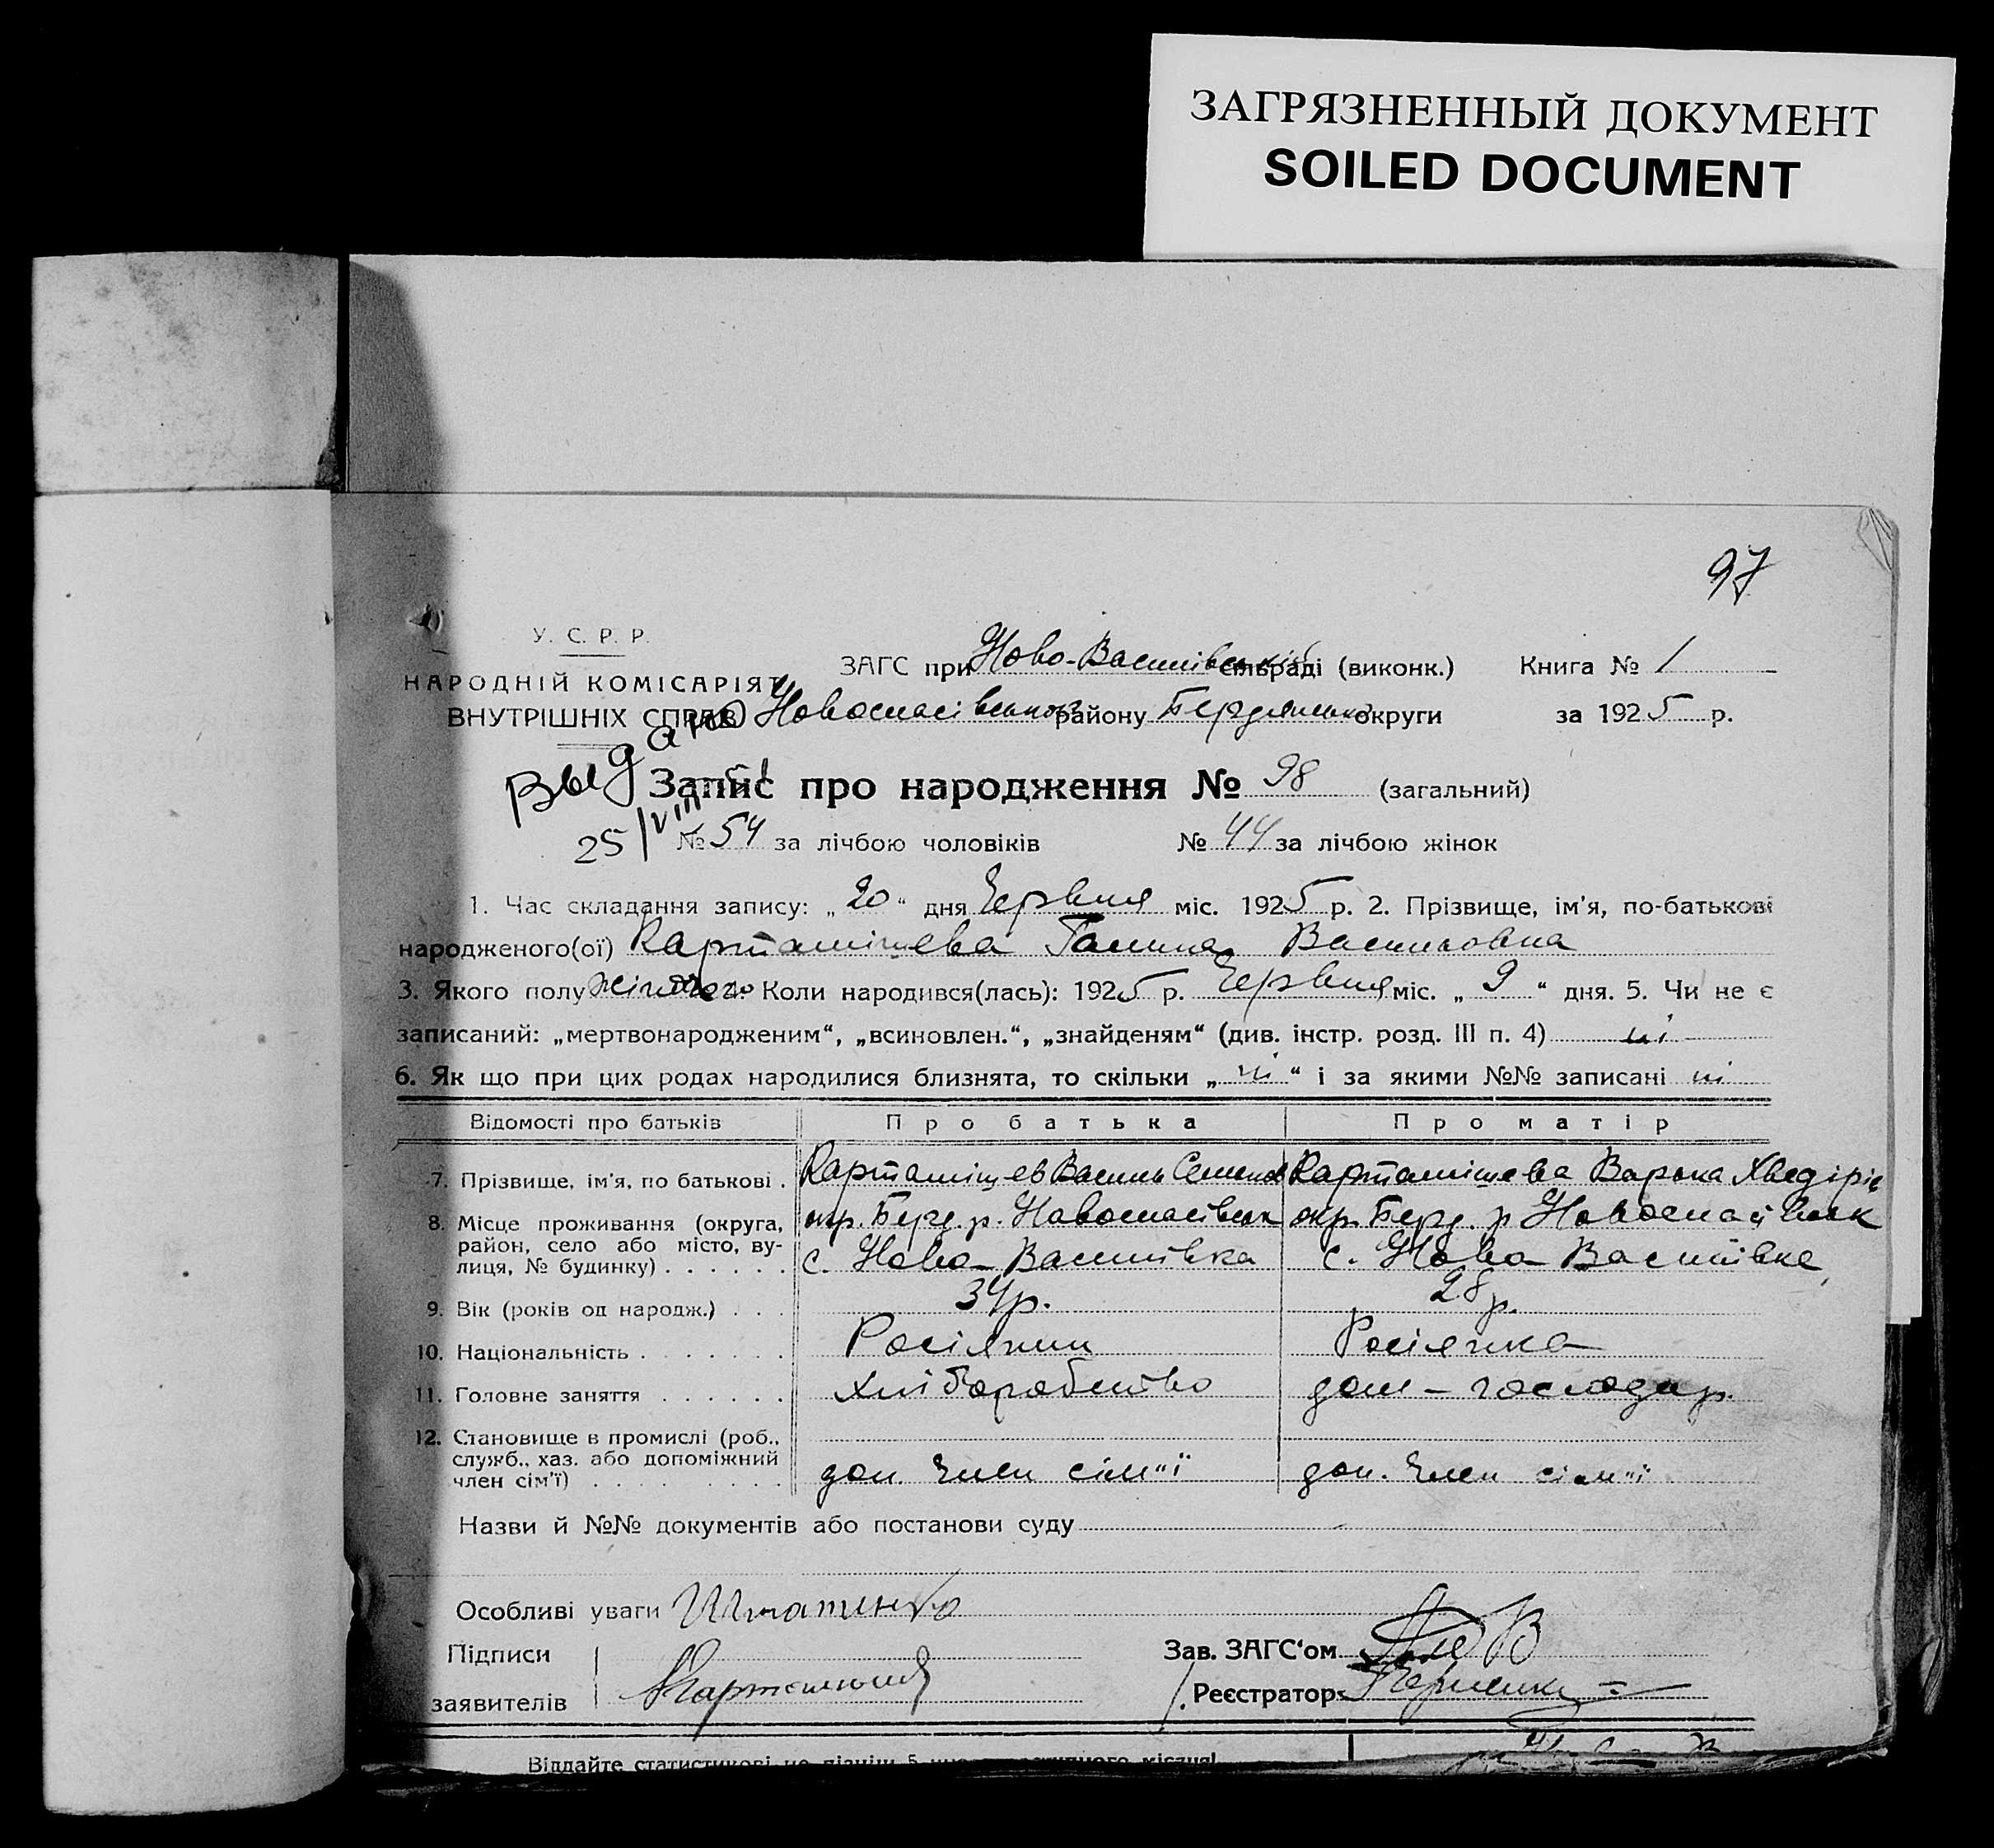 ЗАГРЯЗНЕННЫЙ ДОКУМЕНТ
SOILED DOCUMENT
97
У. С. Р. Р.
НАРОДНІЙ КОМІСАРІЯТ
ВНУТРІШНІХ СПРАВ
ЗАГС при Ново-Василівській сільраді (виконк.) Книга № 1
Новоспасівського району Бердянської округи за 1925 р.
Выдано
25/VIII
Запис про народження № 98 (загальний)
№ 54 за лічбою чоловіків № 44 за лічбою жінок
1. Час складання запису: „20“ дня Червня міс. 1925 р. 2. Прізвище, ім'я, по-батькові
народженого(ої) Карташішева Галина Василовна
3. Якого полу жіночого 4. Коли народився(лась): 1925 р. Червня міс. „9“ дня. 5. Чи не є
записаний: „мертвонародженим“, „всиновлен.“, „знайденям“ (див. інстр. розд. III п. 4) ні
6. Як що при цих родах народилися близнята, то скільки „ні“ і за якими №№ записані ні
Відомості про батьків Про батька Про матір
7. Прізвище, ім'я, по батькові . Карташішев Василь Семенов Карташішева Варька Хведорів
8. Місце проживання (округа, район, село або місто, ву-
лиця, № будинку) . . . . . . окр. Берд. р. Новоспасівськ окр. Берд. р Новоспасівськ
с. Ново-Василівка с. Ново Василівка
9. Вік (років од народж.) . . . 34 р. 28 р.
10. Національність . . . . . . . Росіянин Росіянка
11. Головне заняття . . . . . . Хліборобство дом-господар.
12. Становище в промислі (роб.,
служб., хаз. або допоміжний
член сім'ї) . . . . . . . . доп. член сім"ї доп. член сім"ї
Назви й №№ документів або постанови суду
Особливі уваги
Підписи
заявителів
Зав. ЗАГС'ом
Реєстратор
Віддайте статистикові не пізніш 5 числа наступного місяця!